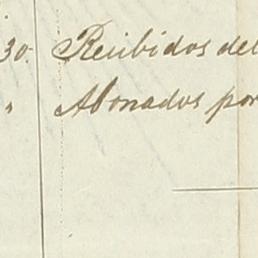 30. Recibidos del
" Abonados por